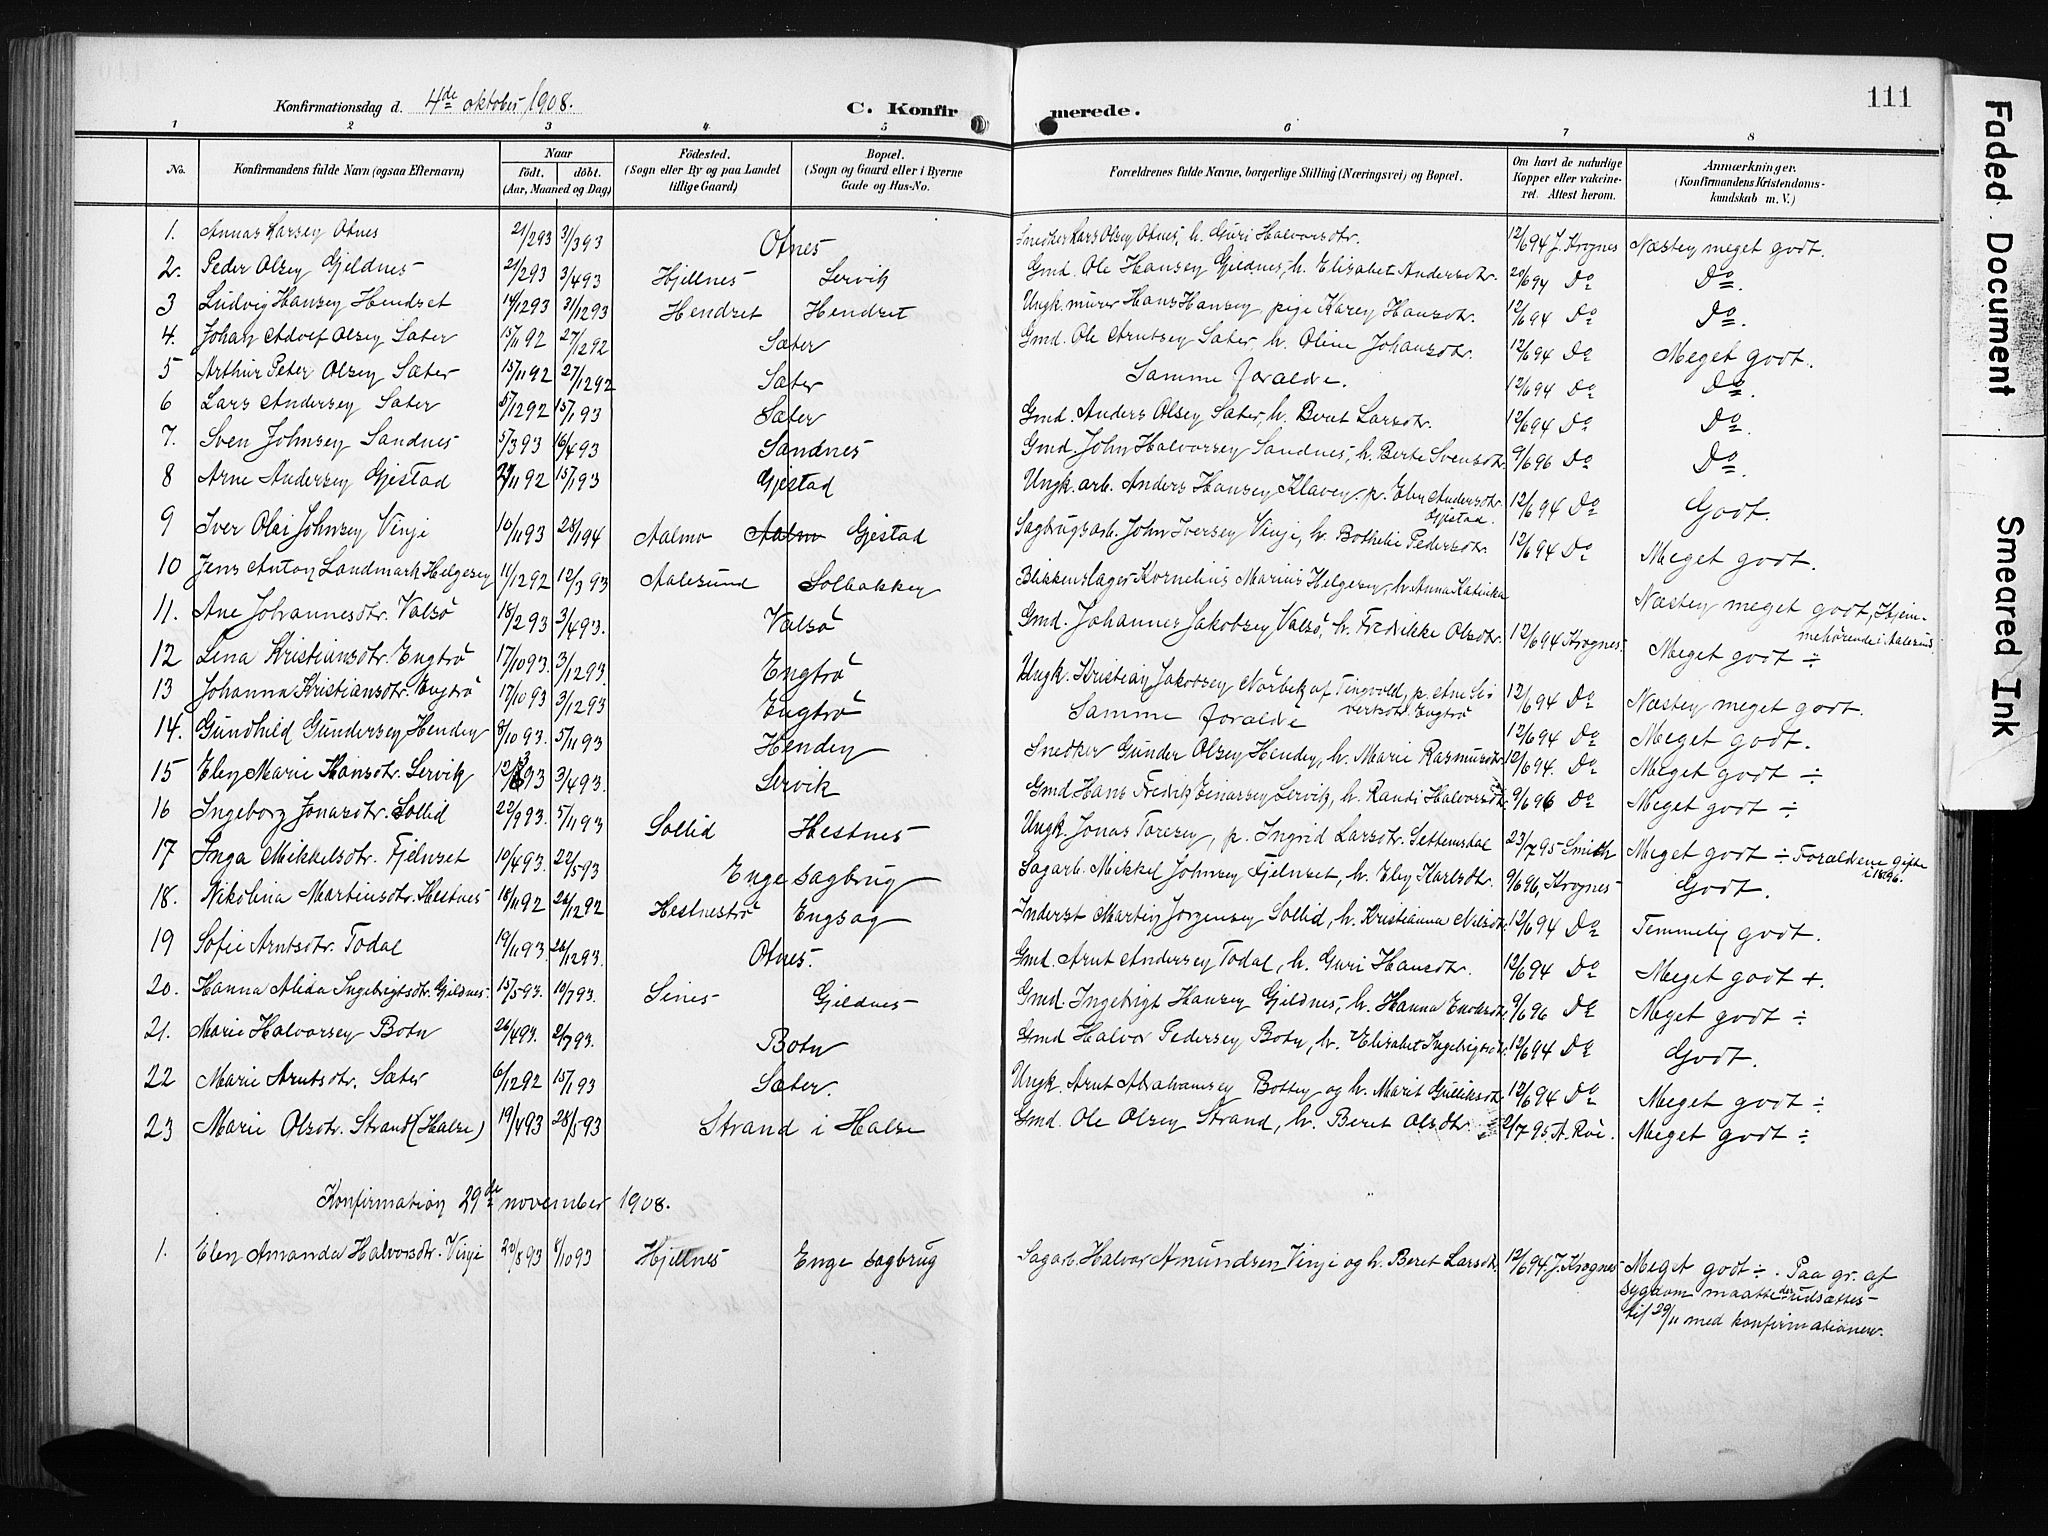 111
Konfirmationsdag d. 4de oktober 1908. C. Konfirmerede.
1 2 3 4 5 6 7 8
No. Konfirmandens fulde Navn (ogsaa Efternavn) Naar födt. döbt. (Aar, Maaned og Dag) Födested. (Sogn eller By og paa Landet tillige Gaard) Bopæl. (Sogn og Gaard eller i Byerne Gade og Hus-No. Forældrenes fulde Navne, borgerlige Stilling (Næringsvei) og Bopæl. Om havt de naturlige Kopper eller vakcineret. Attest herom. Anmærkninger. (Konfirmandens Kristendomskundskab m. V.)
1. Annas Larsen Otnes 21/2 93 3/3 93 Otnes Snedker Lars Olsen Otnes, h. Guri Halvorsdtr. 12/6 94 J. Krognes Næsten meget godt.
2. Peder Olsen Gjeldnes 21/2 93 3/4 93 Hjellnes Servik Gmd. Ole Hansen Gjeldnes, h. Elisabet Andersdtr. 20/6 94 Do Do.
3 Ludvig Hansen Hendset 14/12 93 31/12 93 Hendset Hendset Ungk. murer Hans Hansen, pige Karen Hansdtr. 12/6 94 Do Do.
4. Johan Adolf Olsen Sæter 15/11 92 27/12 92 Sæter Gmd. Ole Arntsen Sæter, h. Oline Johansdtr. 12/6 94 Do Meget godt.
5 Arthur Peter Olsen Sæter 15/11 92 27/12 92 Sæter Samme forældre. 12/6 94 Do Do.
6 Lars Andersen Sæter 5/12 92 15/1 93 Sæter Gmd. Anders Olsen Sæter, h. Beret Larsdtr. 12/6 94 Do Do.
7. Sven Johnsen Sandnes 5/3 93 16/4 93 Sandnes Gmd. John Halvorsen Sandnes, h. Berte Svensdtr. 9/6 96 Do Do.
8 Arne Andersen Gjestad 27/11 92 15/1 93 Gjestad Ungk. arb. Anders Hansen Klaven, p. Elen Andersdtr. Gjestad. 12/6 94 Do Godt.
9 Iver Olai Johnsen Vinje 10/11 93 28/1 94 Aalmo Aalmo Gjestad Sagbrugsarb. John Iversen Vinje, h. Bothelie Pedersdtr. 12/6 94 Do Meget godt.
10 Jens Anton Landmark Helgesen 11/12 92 12/3 93 Aalesund Solbakken Blikkenslager Kornelius Marius Helgesen, h. Anna Katinka Næsten meget godt, Hjemmehørende i Aalesund.
11. Ane Johannesdtr. Valsö 18/2 93 3/4 93. Valsö Gmd. Johannes Jakobsen Valsö, h. Fredrikke Olsdtr. 12/6 94 Krognes. Meget godt ÷
12 Lina Kristiansdtr. Engtrö 17/10 93. 3/12 93. Engtrö Ungk. Kristian Jakobsen Nörbek af Tingvold, p. Ane Sivertsdtr. Engtrö 12/6 94 Do Næsten meget godt.
13 Johanna Kristiansdtr. Engtrö 17/10 93 3/12 93 Engtrö Samme forældre 12/6 94 Do Meget godt.
14. Gundhild Gundersen Henden 8/10 93. 5/11 93 Henden Snedker Gunder Olsen Henden, h. Marie Rasmusdtr. 12/6 94. Do Meget godt ÷
15 Elen Marie Hansdtr. Servik 12/3 93 3/4 93. Servik Gmd Hans Fredrik Einarsen Servik, h. Randi Halvorsdtr. 9/6 96 Do Meget godt ÷
16 Ingeborg Jonasdtr. Sollid 22/9 93. 5/11 93 Sollid Hestnes Ungk. Jonas Toresen, p. Ingrid Larsdtr. Settemsdal 23/7 95 Smith Meget godt ÷ Forældrene gifte i 1896.
17 Inga Mikkelsdtr. Fjelnset 10/4 93. 22/5 93 Enge sagbrug Sagarb. Mikkel Johnsen Fjelnset, h. Elen Karlsdtr. 9/6 96, Krognes Godt.
18. Nikolina Martinsdtr. Hestnes 18/11 92 26/12 92 Hestneströ Engsag Inderst Martin Jörgensen Sollid, h. Kristianna Nilsdtr. 12/6 94 Do Temmelig godt.
19 Sofie Arntsdtr. Todal 19/11 93. 26/12 93. Otnes. Gmd. Arnt Andersen Todal, h. Guri Hansdtr. 12/6 94 Do Meget godt +.
20. Hanna Alida Ingebrigtsdtr. Gjeldnes 15/5 93. 10/7 93. Sines Gjeldnes Gmd. Ingebrigt Hansen Gjeldnes, h. Hanna Enoksdtr. 9/6 96 Do Meget godt ÷
21. Marie Halvorsen Botn 26/4 93. 2/7 93. Botn Gmd Halvor Pedersen Botn, h. Elisabet Ingebrigtsdtr. 12/6 94 Do Godt.
22 Marie Arntsdtr. Sæter 6/12 92 15/1 93 Sæter. Ungk. Arnt Abrahamsen Botten og h. Marit Gulliksdtr. 12/6 94 Do Meget godt ÷
23 Marie Olsdtr. Strand (Halse) 19/4 93 28/5 93 Strand i Halse Gmd. Ole Olsen Strand, h. Beret Olsdtr. 2/7 95 A. Röe. Meget godt ÷
Konfirmation 29de november 1908.
1. Elen Amanda Halvorsdtr. Vinje 20/8 93 8/10 93 Hjellnes Enge sagbrug Sagarb. Halvor Amundsen Vinje og h. Beret Larsdtr. 12/6 94. J. Krognes Meget godt ÷. Paa gr. af
sygdom maatte der udsættes
til 29/11 med konfirmationen.
Faded Document
Smeared Ink